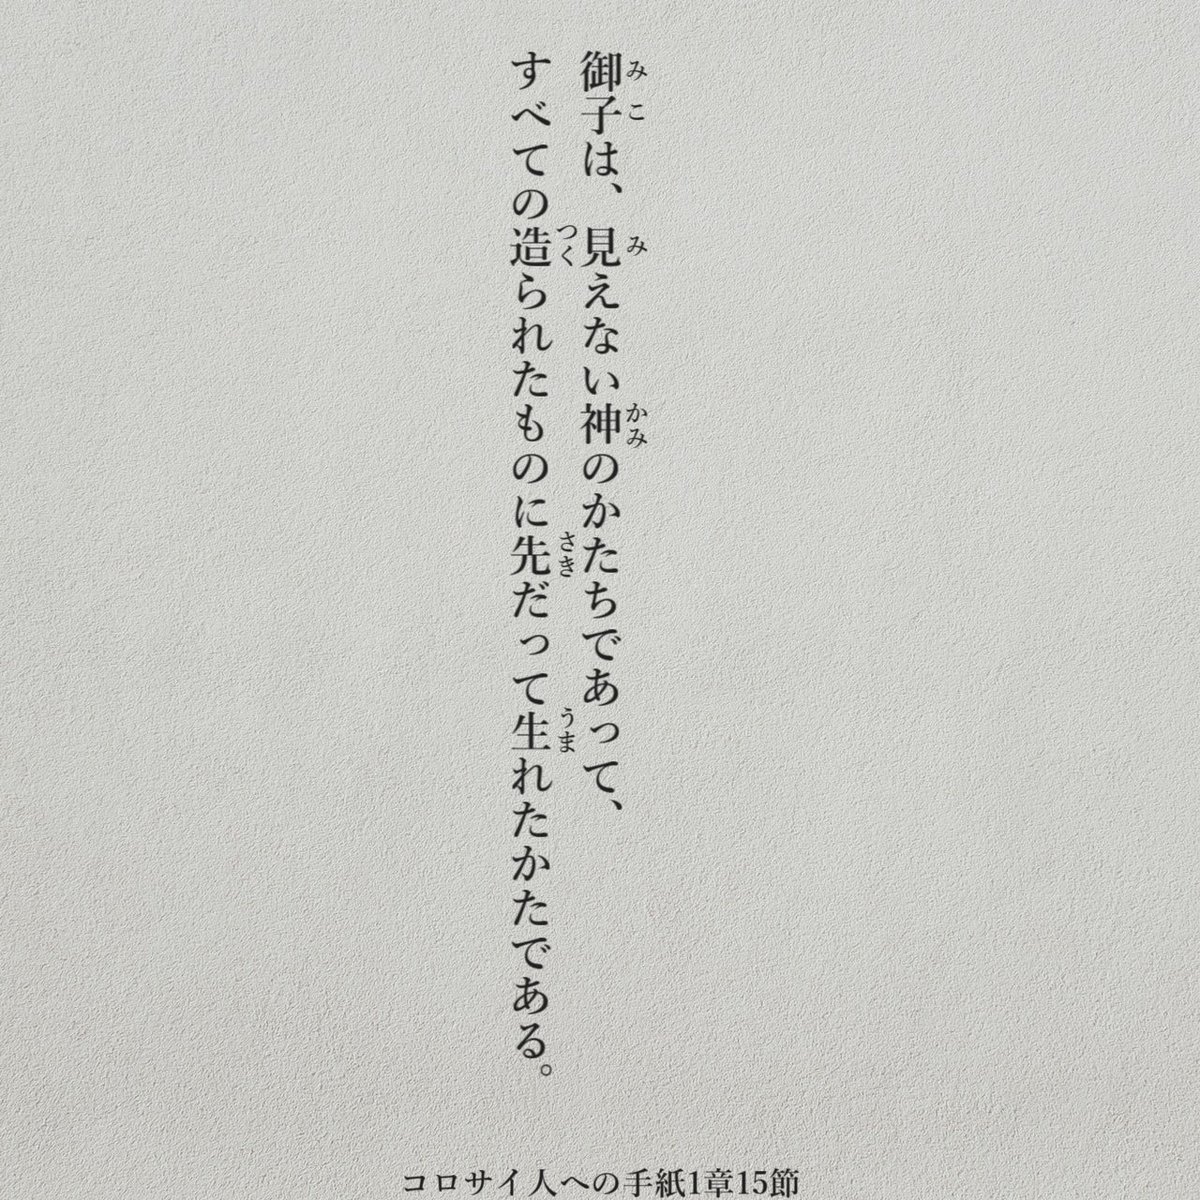 御子は、見えない神のかたちであって、
すべての造られたものに先だって生れたかたである。
コロサイ人への手紙1章15節